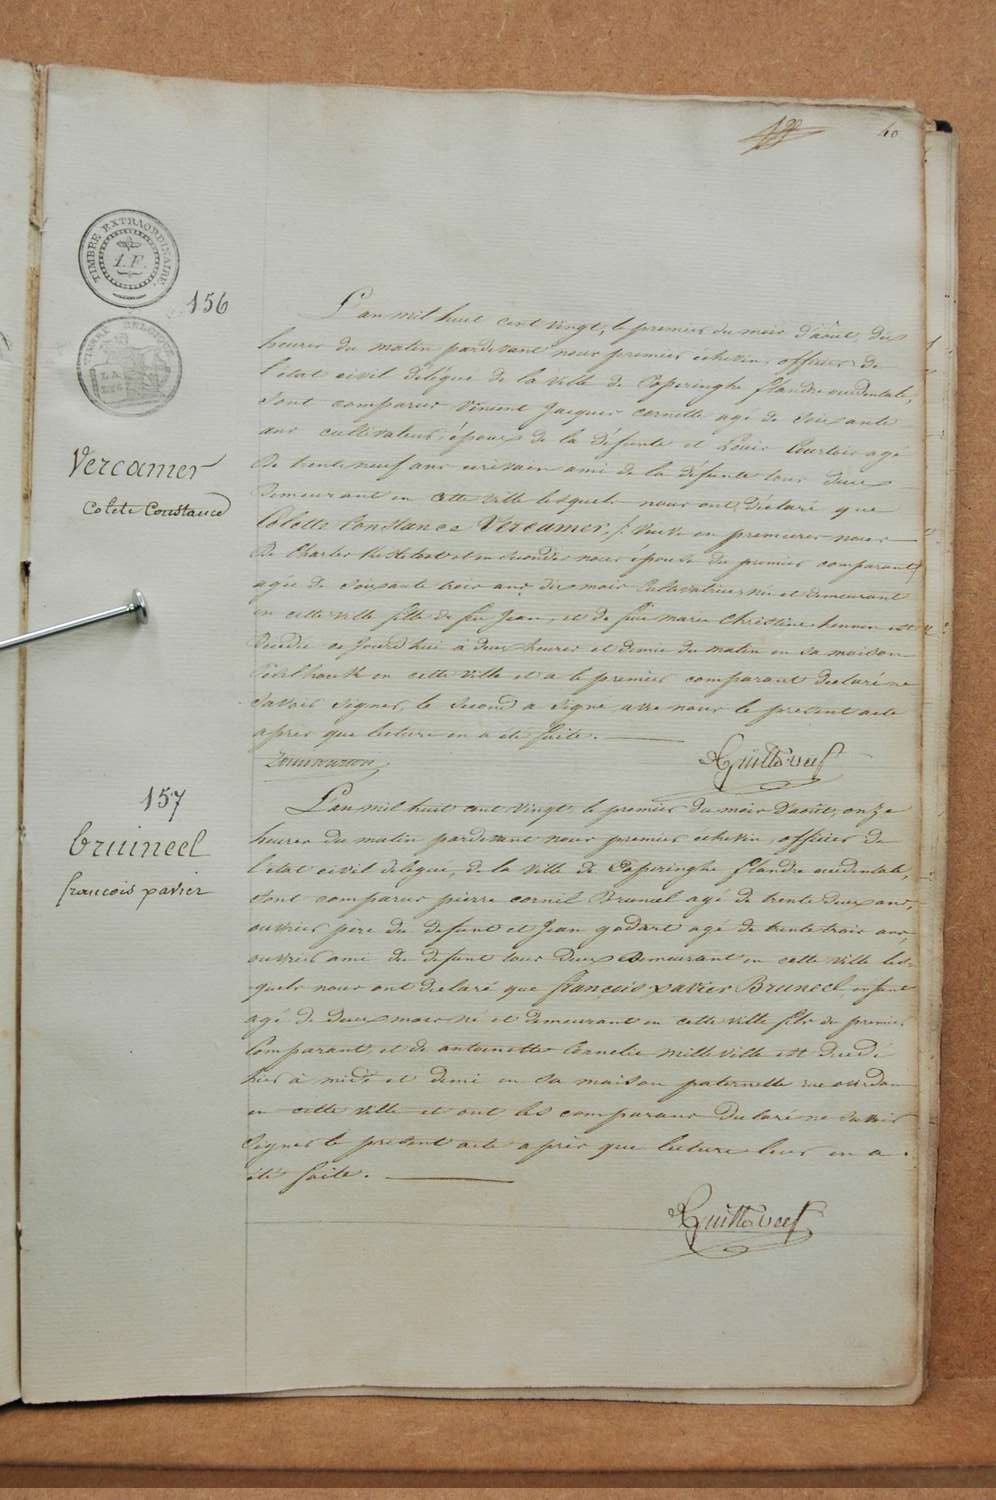 40
TIMBRE EXTRAORDINAIRE.
1.F.
156
Vercamer
Colete Constance
L'an mil huit cent vingt, le premier du mois d'août, dix
heures du matin pardevant nous premier echevin, officier de
l'état civil delégué de la ville de Poperinghe flandre occidentale,
sont comparus Vincent Jacques cornette agé de soixante
ans cultivateur, époux de la défunte et Louis Courtois agé
de trente neuf ans ecrivain ami de la défunte tous deux
demeurant en cette ville lesquels nous ont déclaré que
Colette Constance Vercamer, veuve en premieres noces
de Charles et en secondes noces épouse du premier comparant
agée de soixante trois ans, dix mois Cultivatrice née et demeurant
en cette ville fille de feu Jean, et de feue marie Christine est
decedée ce jourd'hui à deux heures et demie du matin en sa maison
en cette ville et a le premier comparant declaré ne
savoir signer, le second a signé avec nous le présent acte
après que lecture en a été faite.
157
bruineel
francois xavier
L'an mil huit cent vingt, le premier du mois d'août, onze
heures du matin pardevant nous premier echevin, officier de
l'état civil delégué, de la ville de Poperinghe flandre occidentale,
sont comparus pierre cornil Bruneel agé de trente deux ans,
ouvrier père du defunt et Jean godart agé de trente trois ans,
ouvrier ami du defunt tous deux demeurant en cette ville les-
quels nous ont declaré que françois xavier Bruneel, enfant
agé de deux mois né et demeurant en cette ville fils du premier
Comparant, et de antoinette Cornelie milleville est decedé
hier à midi et demi en sa maison paternelle rue
en cette ville et ont les comparans declaré ne savoir
signer le présent acte après que lecture leur en a
été faite.